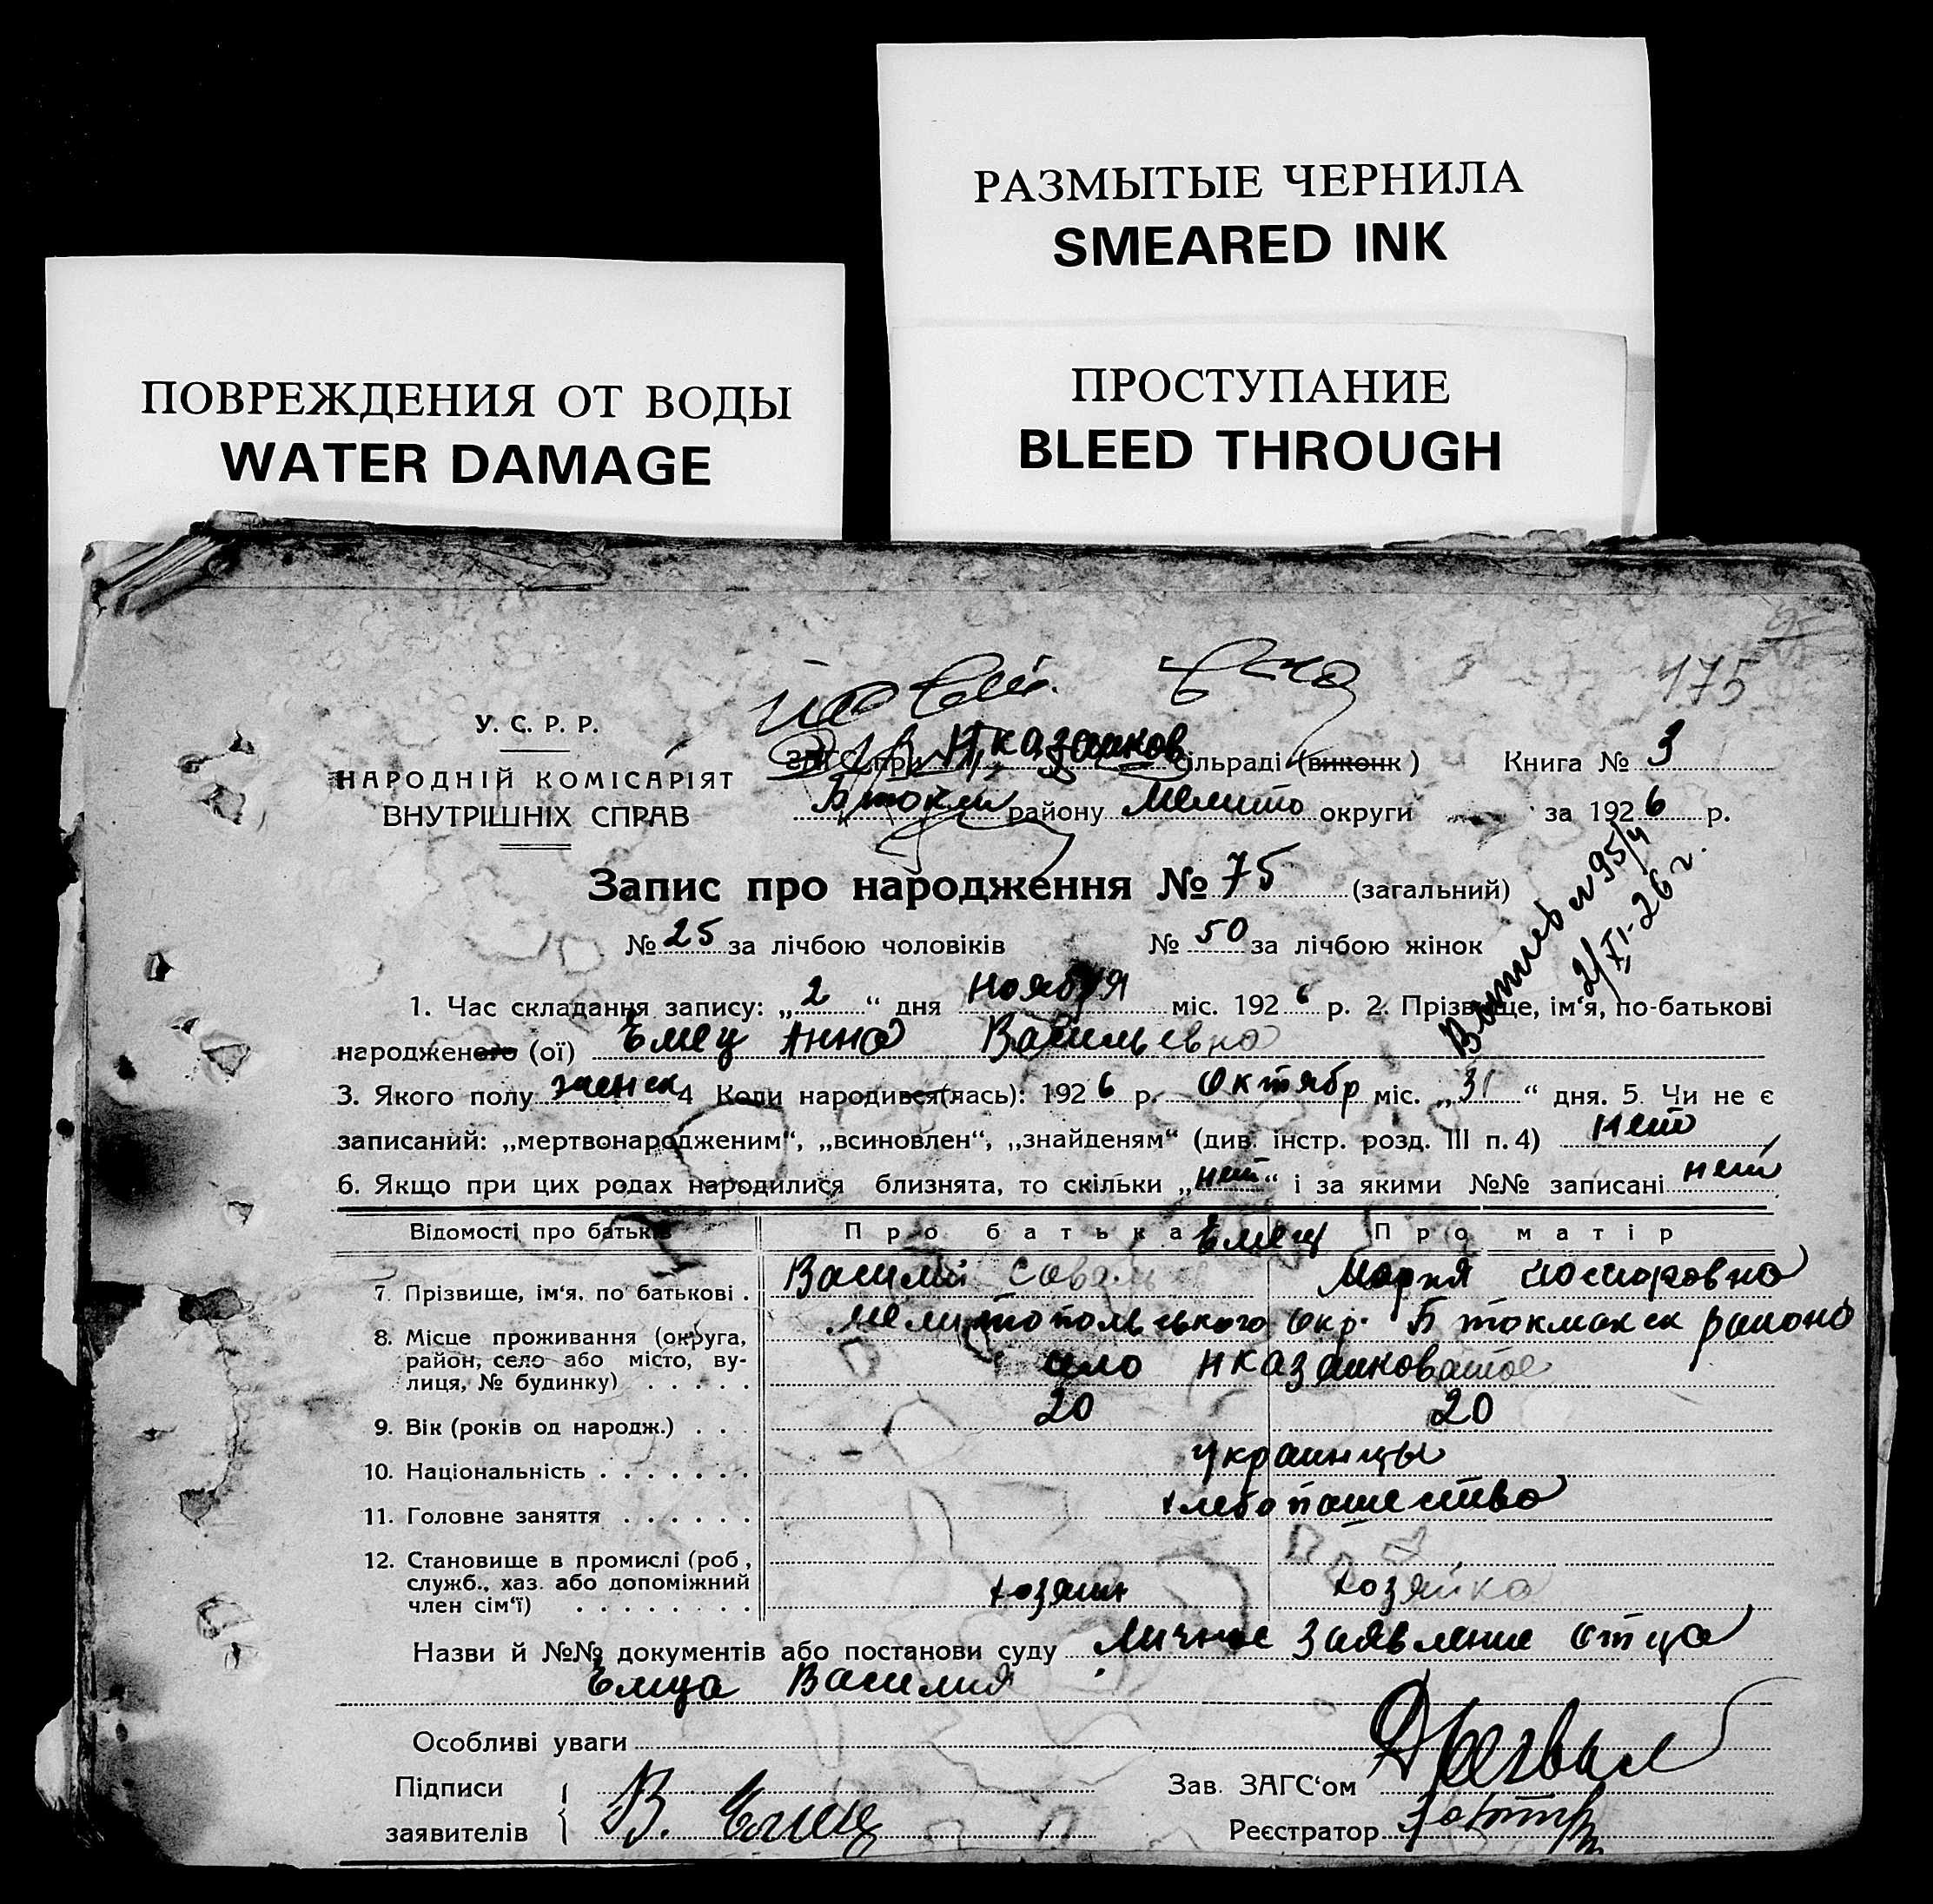 РАЗМЫТЫЕ ЧЕРНИЛА
SMEARED INK
ПОВРЕЖДЕНИЯ ОТ ВОДЫ
WATER DAMAGE
ПРОСТУПАНИЕ
BLEED THROUGH
175
У. С. Р. Р.
НАРОДНІЙ КОМІСАРІЯТ
ВНУТРІШНІХ СПРАВ
ЗАГС при Нказанков сільраді (виконк) Книга № 3
Б токм району Мелито округи за 1926 р.
Запис про народження № 75 (загальний)
№ 25 за лічбою чоловіків № 50 за лічбою жінок
№ 95/4
2/XI-26 г.
1. Час складання запису: „2“ дня ноября міс. 1926 р. 2. Прізвище, ім‘я, по-батькові
народженого (ої) Емец Анна Васильевна
3. Якого полу женск 4 Коли народився(лась): 1926 р. Октябр міс. „31“ дня. 5. Чи не є
записаний: „мертвонародженим“, „всиновлен“, „знайденям“ (див. інстр. розд. III п. 4) нет
6. Якщо при цих родах народилися близнята, то скільки „нет“ і за якими №№ записані нет
Відомості про батьків Про батька Емец Про матір
7. Прізвище, ім‘я, по батькові . Василий Мария
8. Місце проживання (округа, район, село або місто, вулиця, № будинку) . . . . . Мелитопольського окр. Б токмакск района
село Нказанковатое
9. Вік (років од народж.) . . . 20 20
10. Національність . . . . . . . украинцы
11. Головне заняття . . . . . . хлебопашество
12. Становище в промислі (роб., служб., хаз. або допоміжний член сім‘ї) . . . . . . . . хозяин хозяйка
Назви й №№ документів або постанови суду Личное заявление отца
Емца Василия
Особливі уваги
Підписи
заявителів В. Емец
Зав. ЗАГС‘ом
Реєстратор